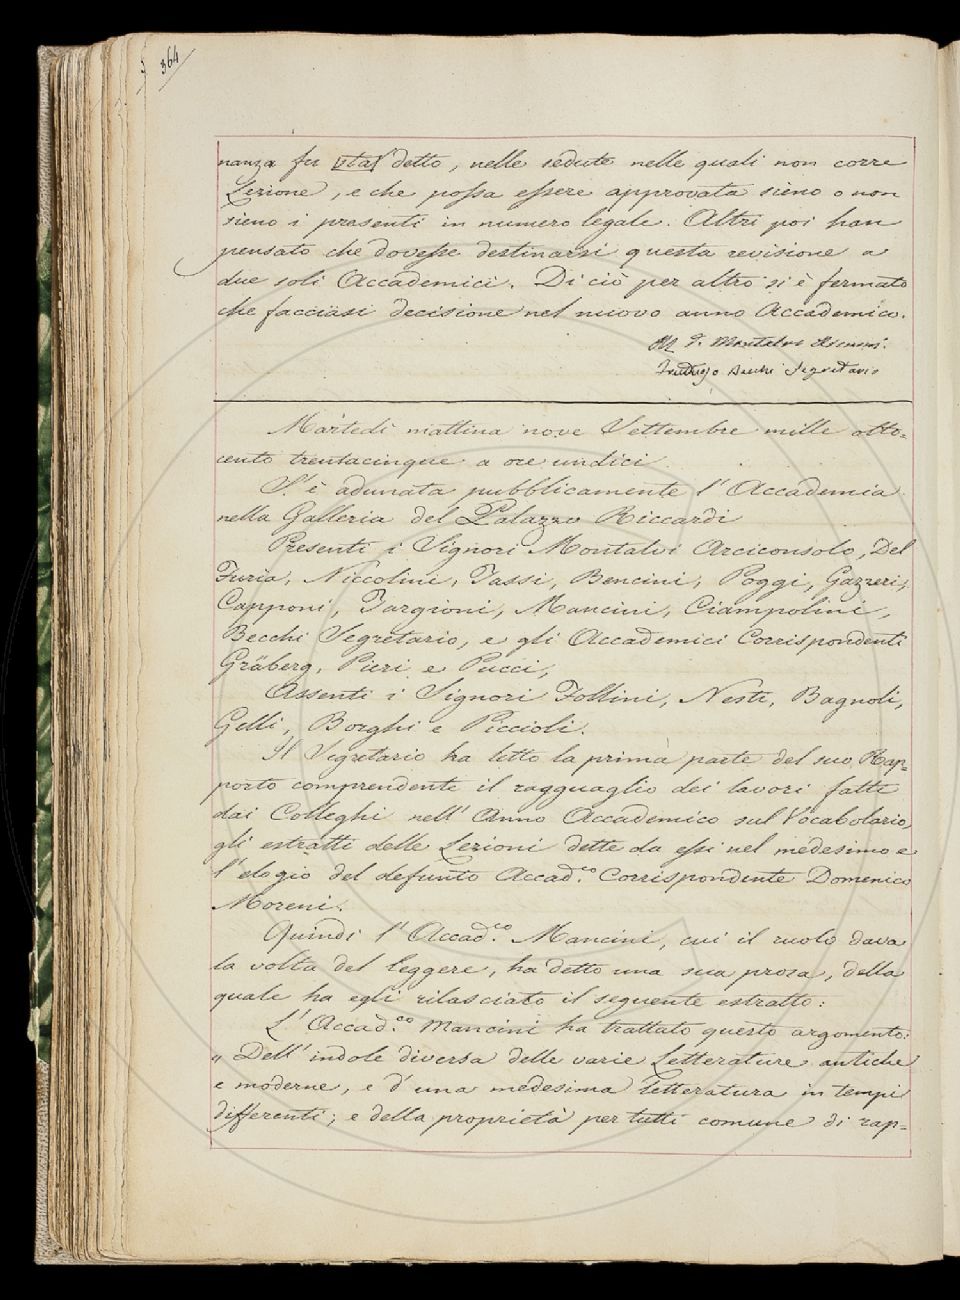 364
nanza fu detto, nelle sedute nelle quali non corre
Lezione, e che possa essere approvata sieno o non
sieno i presenti in numero legale. Altri poi han
pensato che dovesse destinarsi questa revisione a
due soli Accademici. Di ciò per altro si è fermato
che facciasi decisione nel nuovo anno Accademico.
Montalvi
Becchi Segretario
Martedì mattina nove Settembre mille otto=
cento trentacinque a ore undici
S'è adunata pubblicamente l'Accademia
nella Galleria del Palazzo Riccardi
Presenti i Signori Montalvi Arciconsolo, Del
Furia, Niccolini, Tassi, Bencini, Poggi, Gazzeri,
Capponi, Targioni, Mancini, Ciampolini,
Becchi Segretario, e gli Accademici Corrispondenti
Gräberg, Pieri e Pucci,
Assenti i Signori Follini, Nesti, Bagnoli,
Gelli, Borghi e Piccioli.
Il Segretario ha letto la prima parte del suo Rap=
porto comprendente il ragguaglio dei lavori fatti
dai Colleghi nell'Anno Accademico sul Vocabolario,
gli estratti delle Lezioni dette da essi nel medesimo e
l'elogio del defunto Accad.co Corrispondente Domenico
Moreni.
Quindi l'Accad.co Mancini, cui il ruolo dava
la volta del leggere, ha detto una sua prosa, della
quale ha egli rilasciato il seguente estratto:
L'Accad.co Mancini ha trattato questo argomento:
„ Dell'indole diversa delle varie Letterature antiche
e moderne, e d'una medesima letteratura in tempi
differenti; e della proprietà per tutti comune di rap=